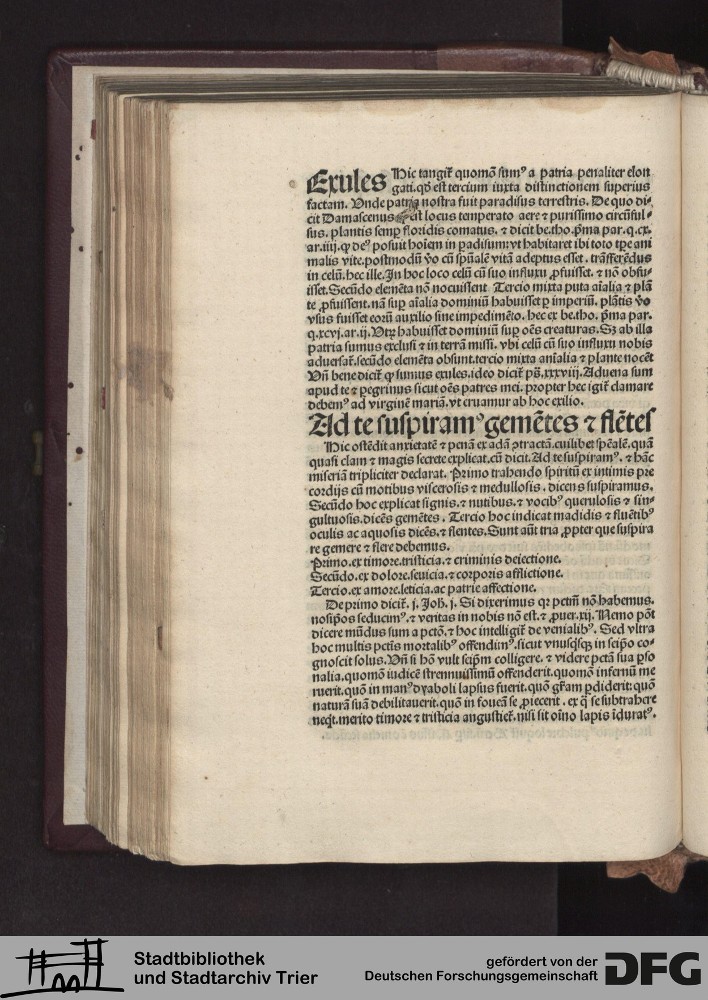 Exules Hic tangit̃ quomõ sumꝰ a patria penaliter elon
gati.qd̕ est tercium iuxta distinctionem superius
factam. Unde patria nostra fuit paradisus terrestris. De quo di⸗
cit Damascenus est locus temperato aere ⁊ purissimo circũful⸗
sus. plantis semꝑ floridis comatus. ⁊ dicit be.tho.p̃ma par.q.cx.
ar.iiij.ꝙ deꝰ posuit hoiem in padisum:vt habitaret ibi toto tꝑe ani
malis vite.postmodũ v̕o cũ spũalẽ vitã adeptus esset. trãsferẽdus
in celũ.hec ille.In hoc loco celũ cũ suo influxu ꝓfuisset. ⁊ nõ obfu⸗
isset.Secũdo elemẽta nõ nocuissent Tercio mixta puta aĩalia ⁊ plã
te ꝓfuissent.nã suꝑ aĩalia dominiũ habuisset ꝑ imperiũ. plãtis v̕o
vsus fuisset eorũ auxilio sine impedimẽto. hec ex be.tho. p̃ma par.
q.xcvj.ar.ij.Utꝝ habuisset dominiũ suꝑ oẽs creaturas.Sꝫ ab illa
patria sumus exclusi ⁊ in terrã missi. vbi celũ cũ suo influxu nobis
aduersat̃.secũdo elemẽta obsunt.tercio mixta anĩalia ⁊ plante nocẽt
Un̄ bene dicit̃ ꝙ sumus exules.ideo dicit̃ ps̃.xxxviij.Aduena sum
apud te ⁊ ꝑegrinus sicut oẽs patres mei. propter hec igit̃ clamare
debemꝰ ad virginẽ mariã.vt eruamur ab hoc exilio.
Ad te suspiramꝰ gemẽtes ⁊ flẽtes
Hic ostẽdit anxietatẽ ⁊ penã ex adã ꝯtractã.cuilibet spẽalẽ.quã
quasi clam ⁊ magis secrete explicat.cũ dicit.Ad te suspiramꝰ. ⁊ hãc
miseriã tripliciter declarat. Primo trahendo spiritũ ex intimis pre
cordijs cũ motibus viscerosis ⁊ medullosis. dicens suspiramus.
Secũdo hoc explicat signis.⁊ nutibus.⁊ vocibꝰ querulosis ⁊ sin⸗
gultuosis.dicẽs gemẽtes. Tercio hoc indicat madidis ⁊ fluẽtibꝰ
oculis ac aquosis dicẽs.⁊ flentes.Sunt aũt tria ꝓpter que suspira
re gemere ⁊ flere debemus.
Primo.ex timore.tristicia.⁊ criminis deiectione.
Secũdo.ex dolore.seuicia.⁊ corporis afflictione.
Tercio.ex amore.leticia.ac patrie affectione.
De primo dicit̃. j. Joh. j. Si dixerimus qꝛ pctm̃ nõ habemus.
nosip̃os seducimꝰ.⁊ veritas in nobis nõ est.⁊ ꝓuer.xx. Nemo põt
dicere mũdus sum a pctõ.⁊ hoc intelligit̃ de venialibꝰ. Sed vltra
hoc multis pctĩs mortalibꝰ offendimꝰ.sicut vnusq̃sqꝫ in seip̃o co⸗
gnoscit solus.Un̄ si hõ vult seip̃m colligere. ⁊ videre pctã sua ꝑso
nalia.quomõ iudicẽ strennuissimũ offenderit.quomõ infernũ me
ruerit.quõ in manꝰ dyaboli lapsus fuerit.quõ grãm ꝑdiderit:quõ
naturã suã debilitauerit.quõ in foueã se ꝓiecerit. ex q̃ se subtrahere
neqt̃.merito timore ⁊ tristicia angustiet̃.nisi sit oĩno lapis ĩduratꝰ.
Stadtbibliothek
und Stadtarchiv Trier
gefördert von der
Deutschen Forschungsgemeinschaft
DFG